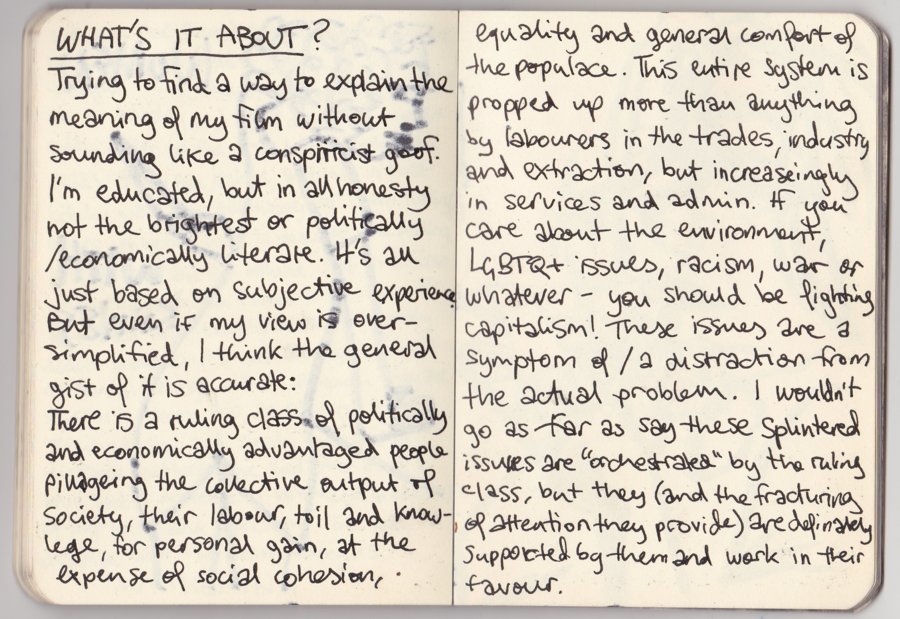 WHAT'S IT ABOUT?
Trying to find a way to explain the
meaning of my film without
sounding like a conspiricist goof.
I'm educated, but in all honesty
not the brightest or politically
/economically literate. It's all
just based on subjective experience
But even if my view is over-
simplified, I think the general
gist of it is accurate:
There is a ruling class of politically
and economically advantaged people
pillageing the collective output of
society, their labour, toil and know-
lege, for personal gain, at the
expense of social cohesion,
equality and general comfort of
the populace. This entire system is
propped up more than anything
by labourers in the trades, industry
and extraction, but increaseingly
in services and admin. If you
care about the environment,
LGBTQ+ issues, racism, war or
whatever – you should be fighting
capitalism! These issues are a
symptom of / a distraction from
the actual problem. I wouldn't
go as far as say these splintered
issues are "orchestrated" by the ruling
class, but they (and the fracturing
of attention they provide) are definately
supported by them and work in their
favour.